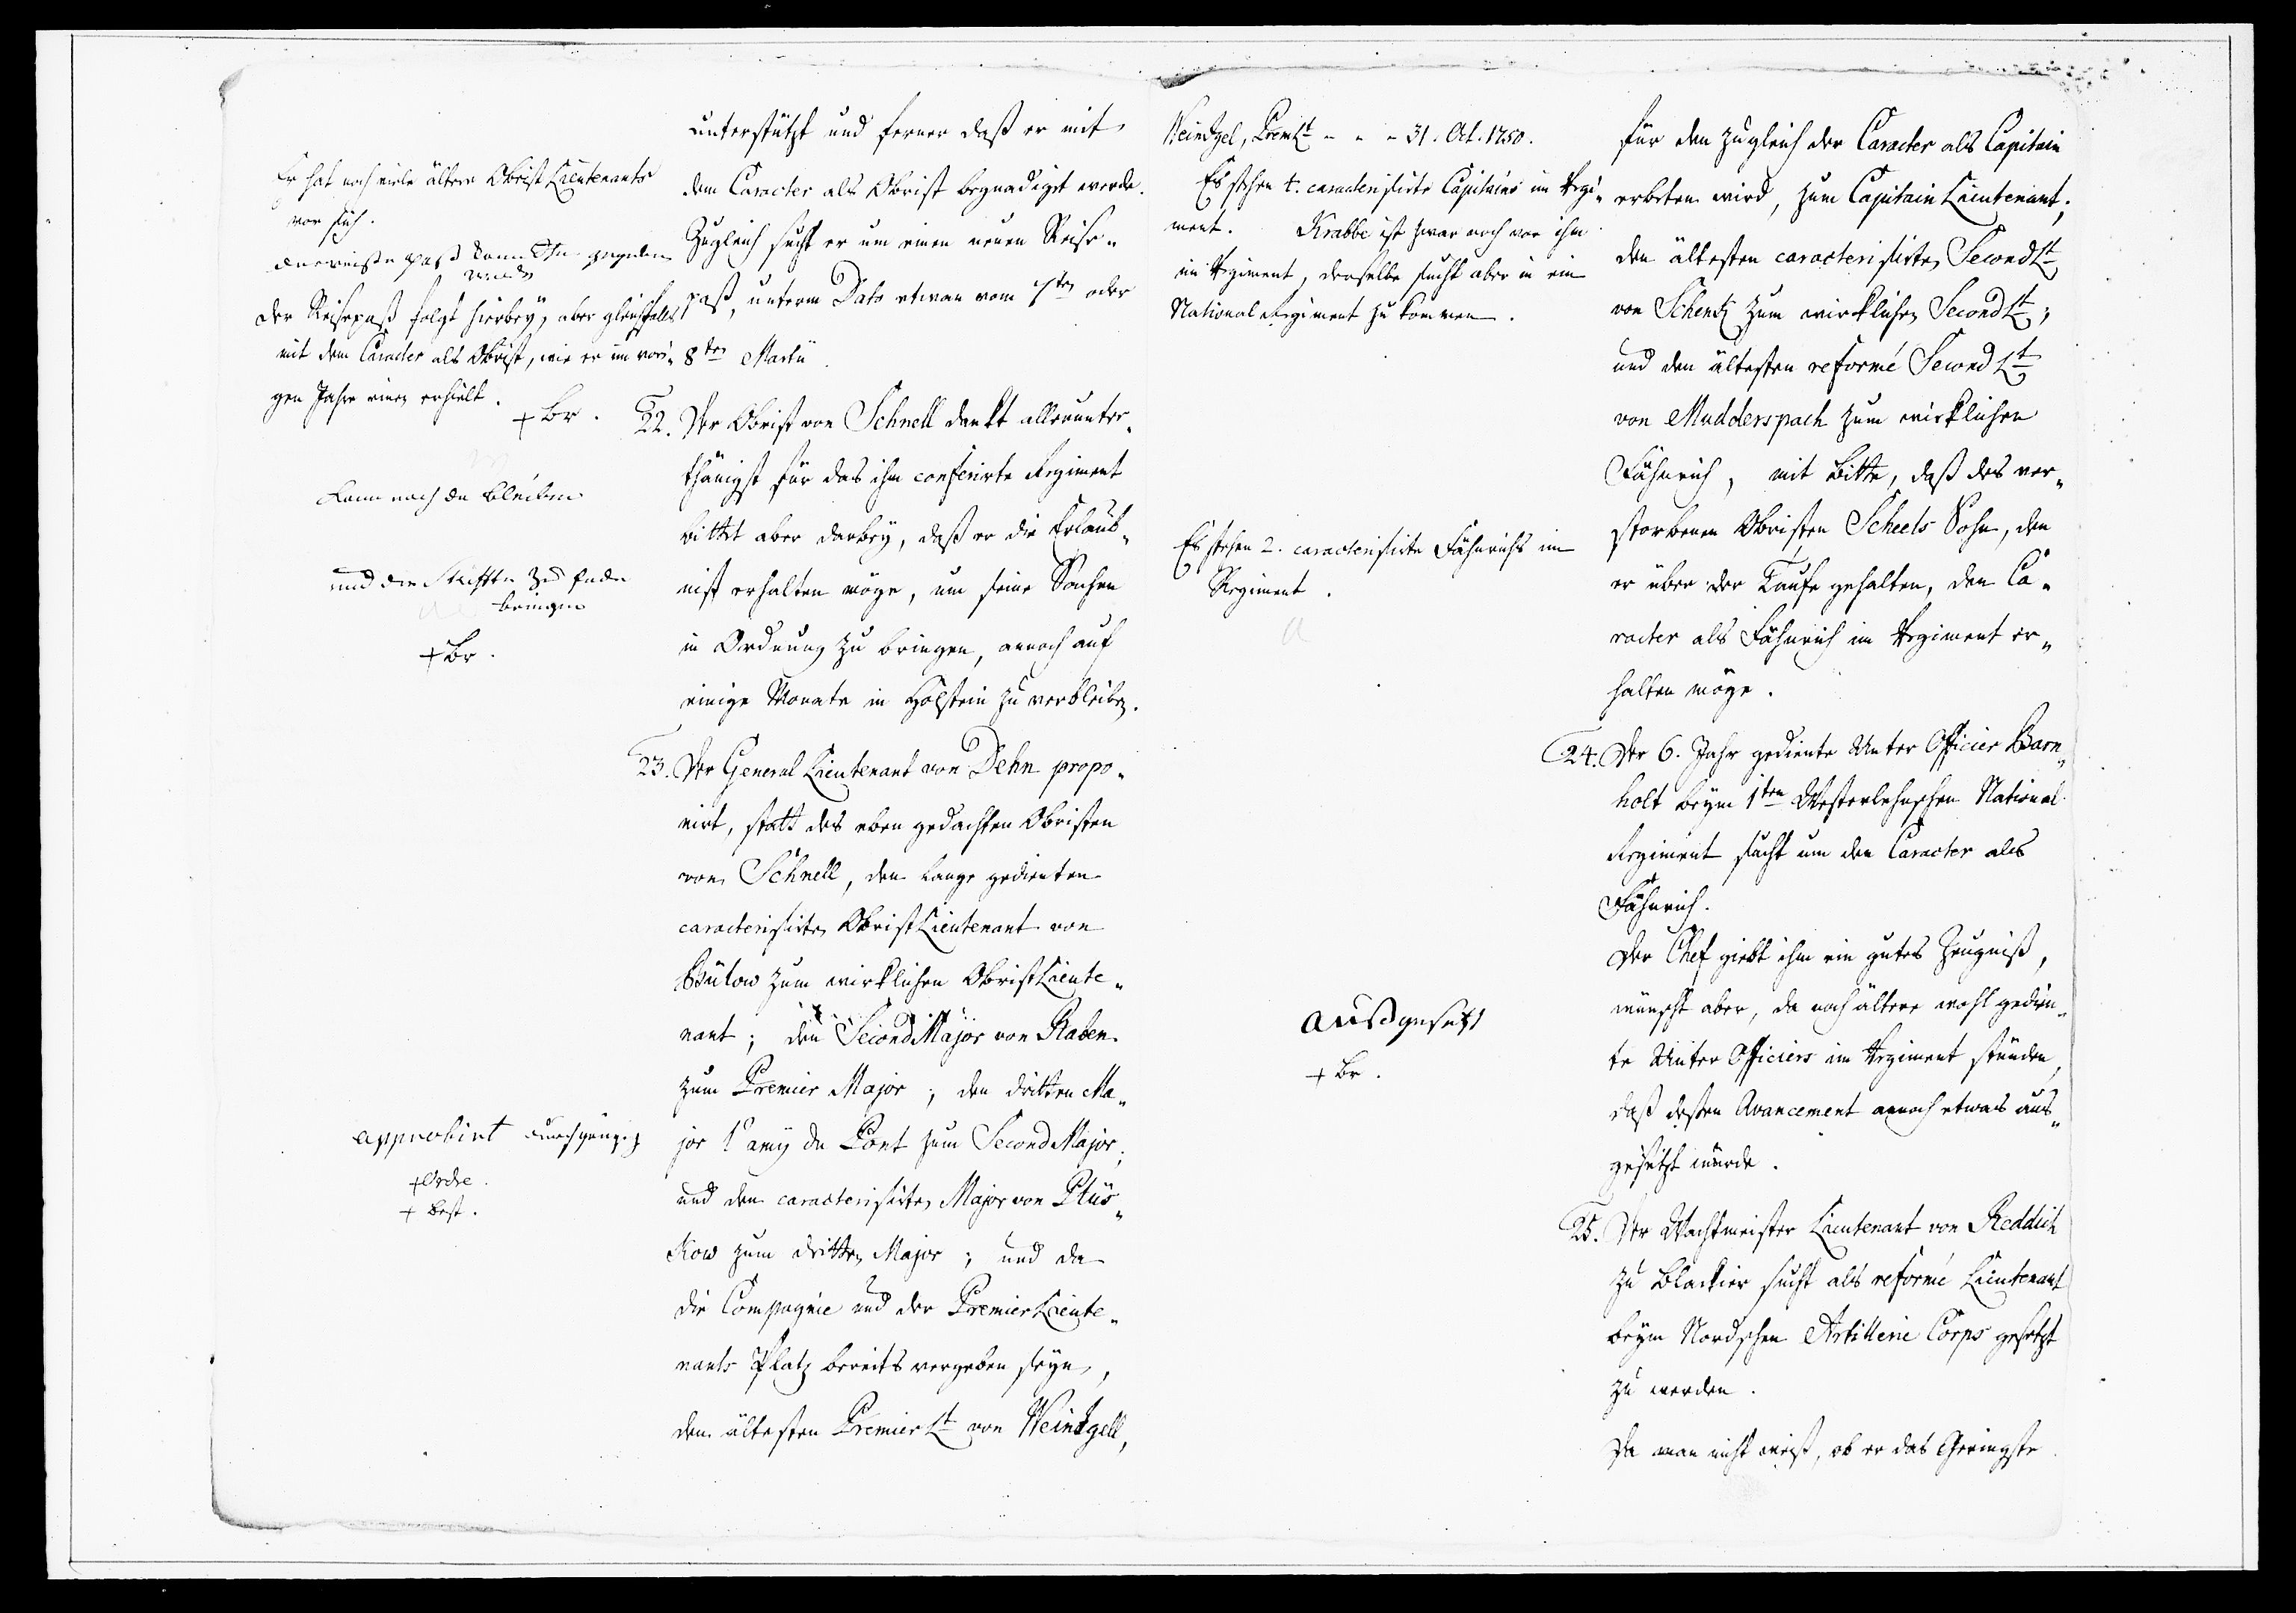 Er hat noch viele ältere Obrist Lieutenants
vor sich.
der reise pass kan Ihm gegeben
werden
Der Reisepaß folgt hierbey, aber gleichfalls
mit dem Caracter als Obrist, wie er im vori-
gen Jahre einen erhielt.
+ Br.
kann noch da bleiben
und die Sachen zu Ende
bringen
+ Br.
approbirt durchgängig
+ Ordre.
+ Best.
unterstützt und ferner daß er mit
dem Caracter als Obrist begnadiget werde.
Zugleich sucht er um einen neuen Reise-
paß, unterm Dato etwan vom 7ten oder
8ten Martii.
22. Der Obrist von Schnell dankt allerunter-
thänigst für das ihm conferirte Regiment
bittet aber darbey, daß er die Erlaub-
niß erhalten möge, um seine Sachen
in Ordnung zu bringen, annoch auf
einige Monate in Holstein zu verbleiben.
23. Der General Lieutenant von Dehn propo-
nirt, statt des eben gedachten Obristen
von Schnell, den lange gedienten
caracterisirten Obrist Lieutenant von
Bülow zum wirklichen Obrist Lieute-
nant; den Second Major von Raben
zum Premier Major; den dritten Ma-
jor l'amy du Pont zum Second Major;
und den caracterisirten Major von Plüs-
kow zum dritten Major; und da
die Compagnie und der Premier Lieute-
nants Platz bereits vergeben seyn,
den ältesten Premier Lt von Weindgell,
Weindgel, Prem Lt - - - 31. Oct. 1750.
Es stehen t. caracterisirte Capitains im Regi-
ment. Krabbe ist zwar noch vor ihm
im Regiment, derselbe sucht aber in ein
National Regiment zu kommen.
Es stehen 2. caracterisirte Fähnrichs im
Regiment.
außgesetzt
+ Br.
für den zugleich der Caracter als Capitain
erbeten wird, zum Capitain Lieutenant;
den ältesten caracterisirten Second Lt
von Schentz zum wirklichen Second Lt;
und den ältesten reformé Second Lt
von Mudderspach zum wirklichen
Fähnrich, mit Bitte, daß des ver-
storbenen Obristen Scheels Sohn, den
er über der Taufe gehalten, den Ca-
racter als Fähnrich im Regiment er-
halten möge.
24. Der 6. Jahr gediente Unter Officier Barn-
holt beym 1ten Westerlehnschen National
Regiment sucht um den Caracter als
Fähnrich.
Der Chef giebt ihm ein gutes Zeugniß,
wünscht aber, da noch ältere wohl gedien-
te Unter Officiers im Regiment stünden,
daß dessen Avancement annoch etwas aus-
gesetzt würde.
25. Der Wachtmeister Lieutenant von Reddich
zu Blackier sucht als reformé Lieutenant
beym Nordschen Artillerie Corps gesetzt
zu werden.
Da man nicht weiß, ob er das Geringste